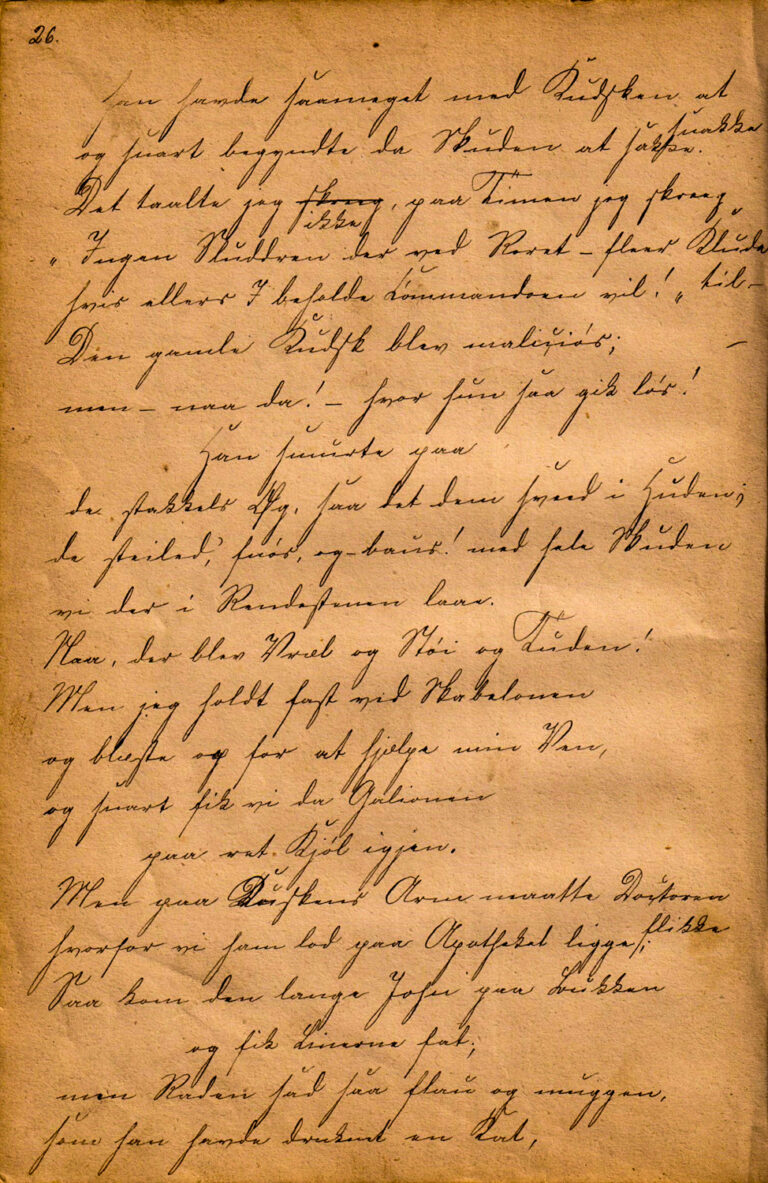 26.
han havde saameget med Kudsken at
snakke
og snart begyndte da Skuden at sakke.
Det taalte jeg skreeg, paa Timen jeg skreeg
ikke
„Ingen Sluddren der ved Roret – fleer Klude
hvis ellers I beholde Commandoen vil!„ til–
Den gamle Kudsk blev maliciös;
men – naa da! – hvor hun saa gik lös!
Han smurte paa
de stakkels Øg, saa det dem sveed i Huden;
de steiled', fnös, og–baus! med hele Skuden
vi der i Rendestenen laae.
Naa, der blev Vræl og Stöi og Tuden!
Men jeg holdt fast ved Skabelonen
og blæste op for at hjelpe min Ven,
og snart fik vi da Galionen
paa ret Kjöl igjen.
Men paa Kudskens Arm maatte Doctoren
flikke
hvorfor vi ham lod paa Apotheket ligge;
Saa kom den lange John paa Bukken
og fik Linerne fat;
men Raden sad saa flau og muggen,
som han havde druknet en Kat,